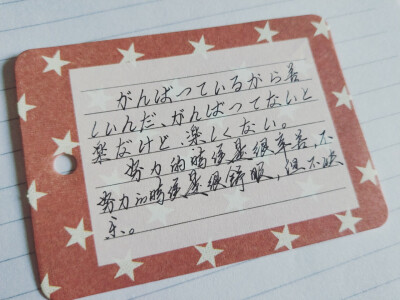 がんばっているから苦
しいんだ、がんばってないと
楽だけど、楽しくない。
努力的时候虽很辛苦，不
努力的时候虽很舒服，但不快
乐。